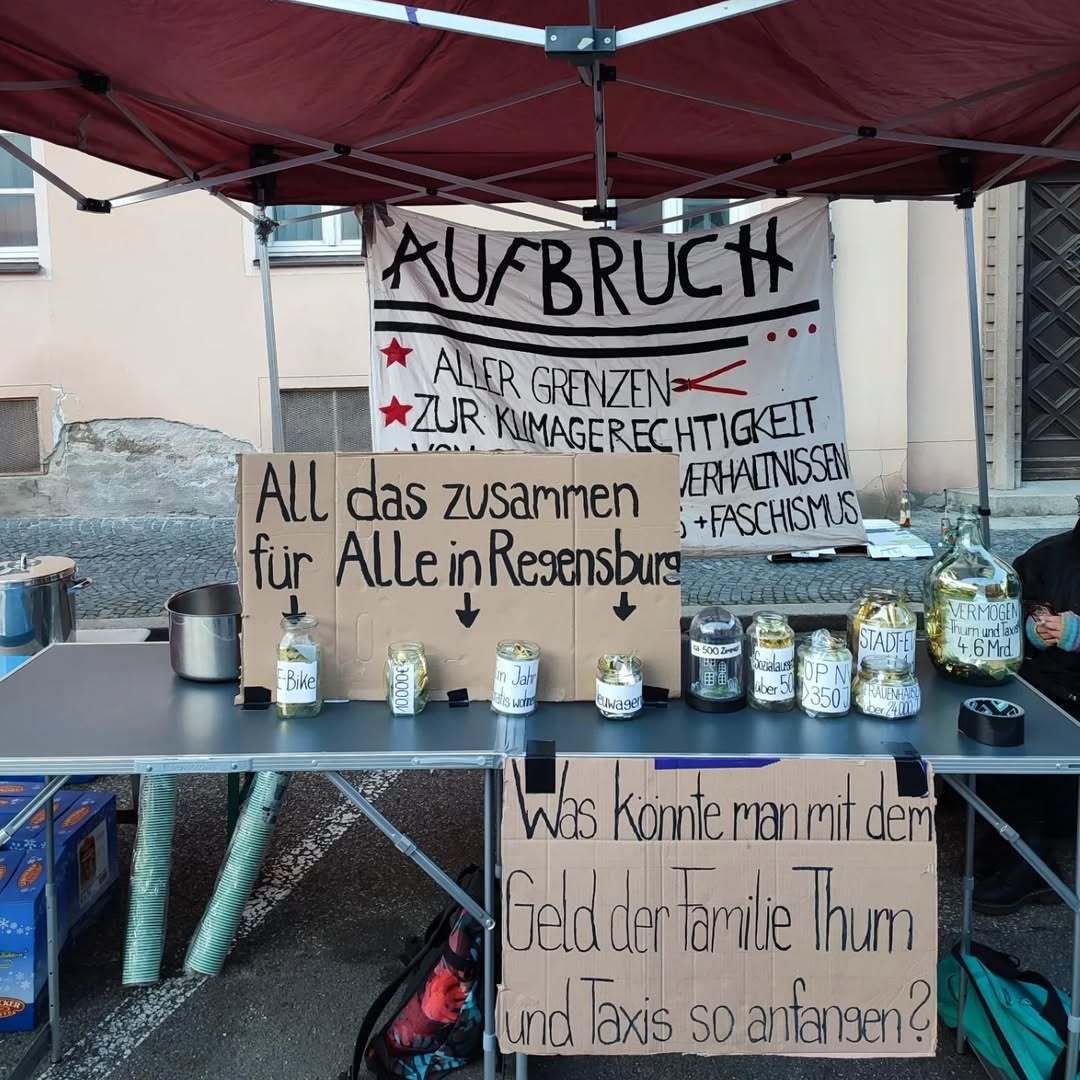 AUFBRUCH
ALLER GRENZEN
ZUR KLIMAGERECHTIGKEIT
VERHÄLTNISSEN
+ FASCHISMUS
All das zusammen
für Alle in Regensburg
E-Bike
10000€
Jahr
gratis wohnen
ca 500 Zimmer
über 50
ÖPN
>350
STADT-
über 24.000
VERMÖGEN
Thurn und Taxis
4,6 Mrd
Was könnte man mit dem
Geld der Familie Thurn
und Taxis so anfangen?